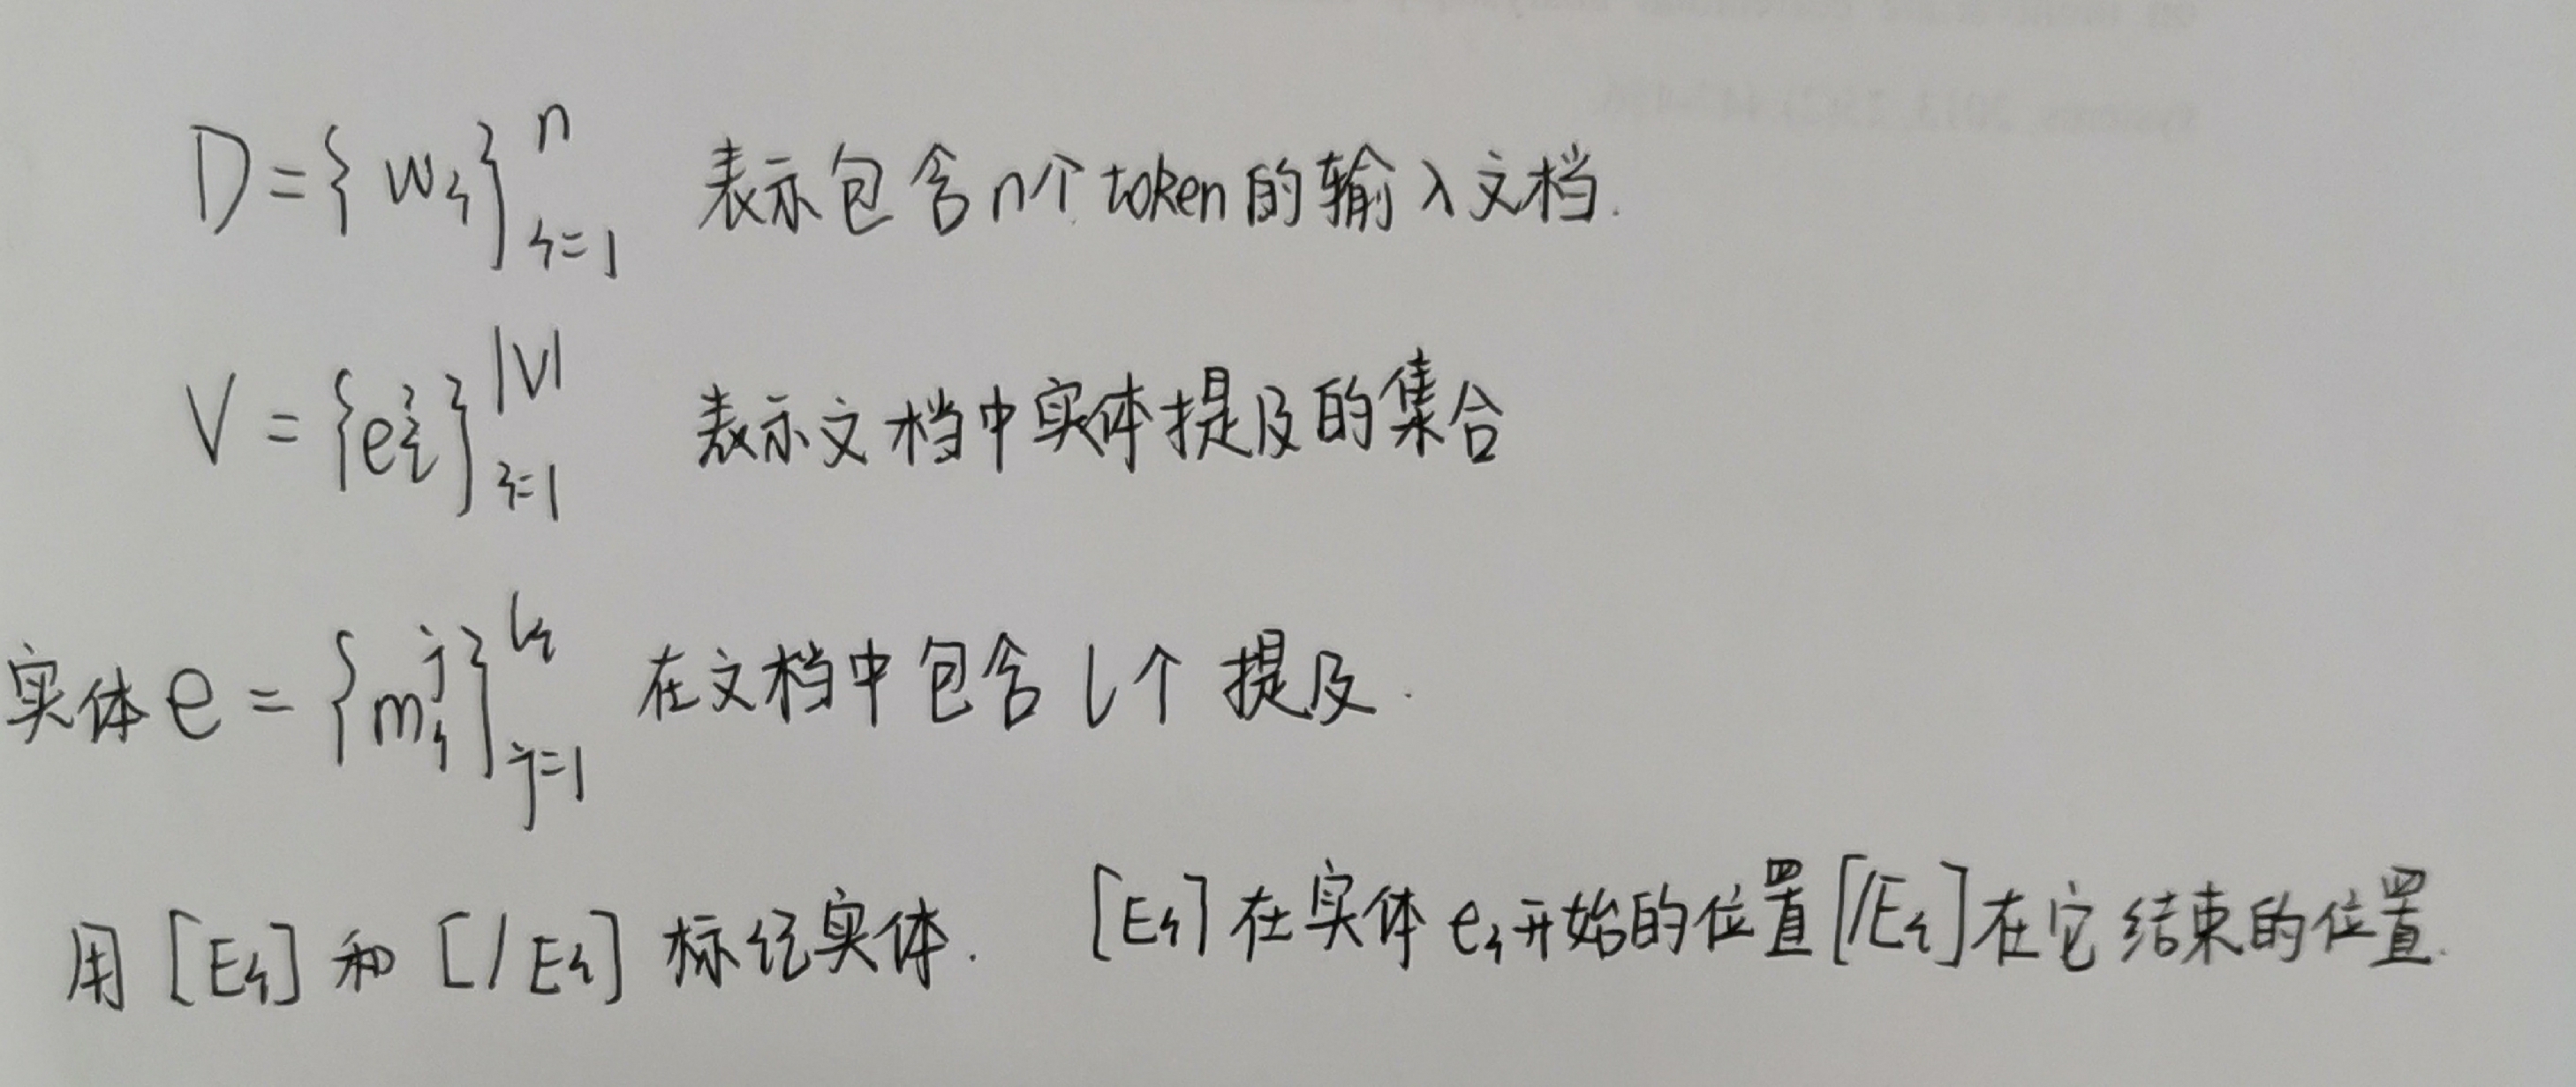 D={w_i}_{i=1}^{n} 表示包含n个token的输入文档.
V={e_i}_{i=1}^{|V|} 表示文档中实体提及的集合
实体e={m_i^j}_{j=1}^{l_i} 在文档中包含l个提及.
用[E_i]和[/E_i]标记实体. [E_i]在实体e_i开始的位置[/E_i]在它结束的位置.